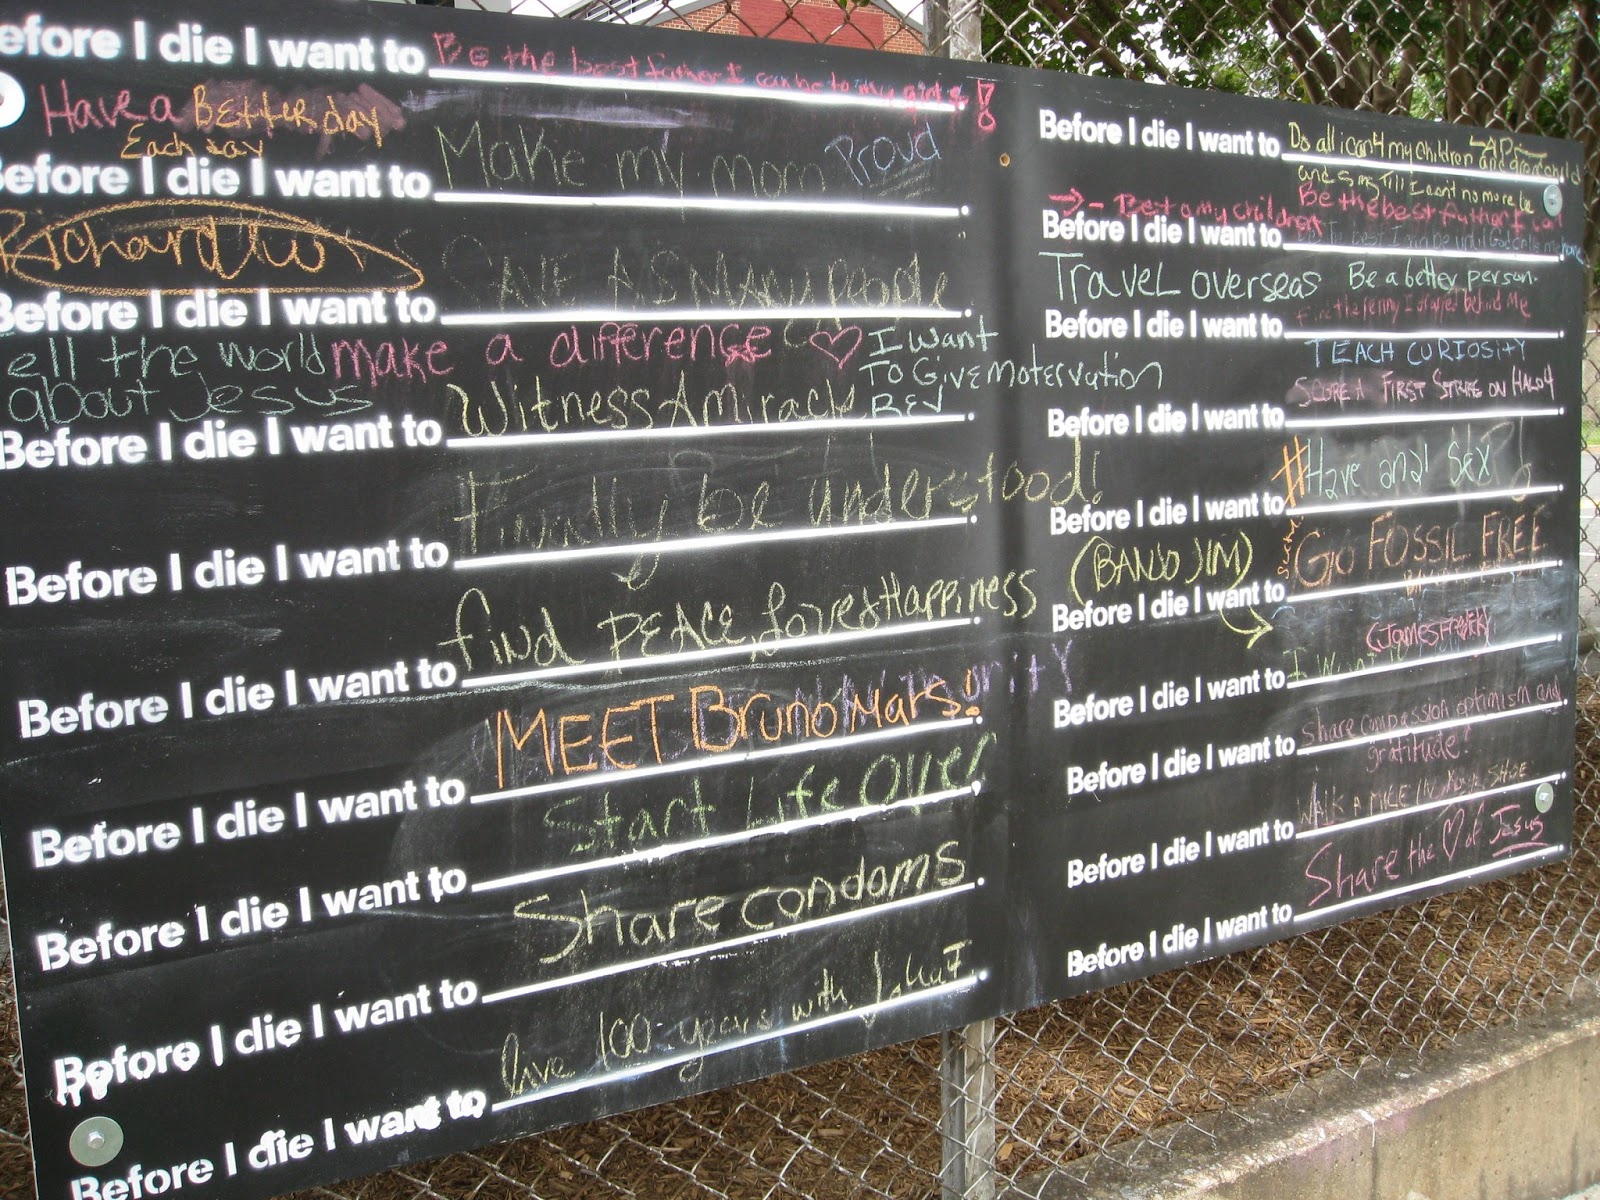 efore I die I want to Be the best father I can be to my girls!
Have a Better day
Each day
Before I die I want to Make my mom Proud
Before I die I want to SAVE AS MANY People
ell the world make a difference I Want
about Jesus To Give Motervation
Before I die I want to Witness A Miracle REV
Before I die I want to Finally be understood!
Before I die I want to find PEACE, Love & Happiness
Before I die I want to MEET Bruno Mars!
Before I die I want to Start Life Over
Before I die I want to Share condoms
Before I die I want to live 100 years with
Before I die I want to
Before I die I want to Do all i can 4 my children and grandchild
and Till I can't no more be
Be the best father I can
Before I die I want to
Travel overseas Be a better person.
Before I die I want to Find the penny I dropped behind Me
TEACH CURIOSITY
Before I die I want to SCORE A FIRST STRIKE ON HALO 4
Before I die I want to #Have anal Sex
(BANJO JIM)
Before I die I want to GO FOSSIL FREE
Before I die I want to I Want
Before I die I want to Share compassion optimism and
gratitude!
Before I die I want to WALK A MILE IN YOUR SHOE
Before I die I want to Share the ♡ of Jesus